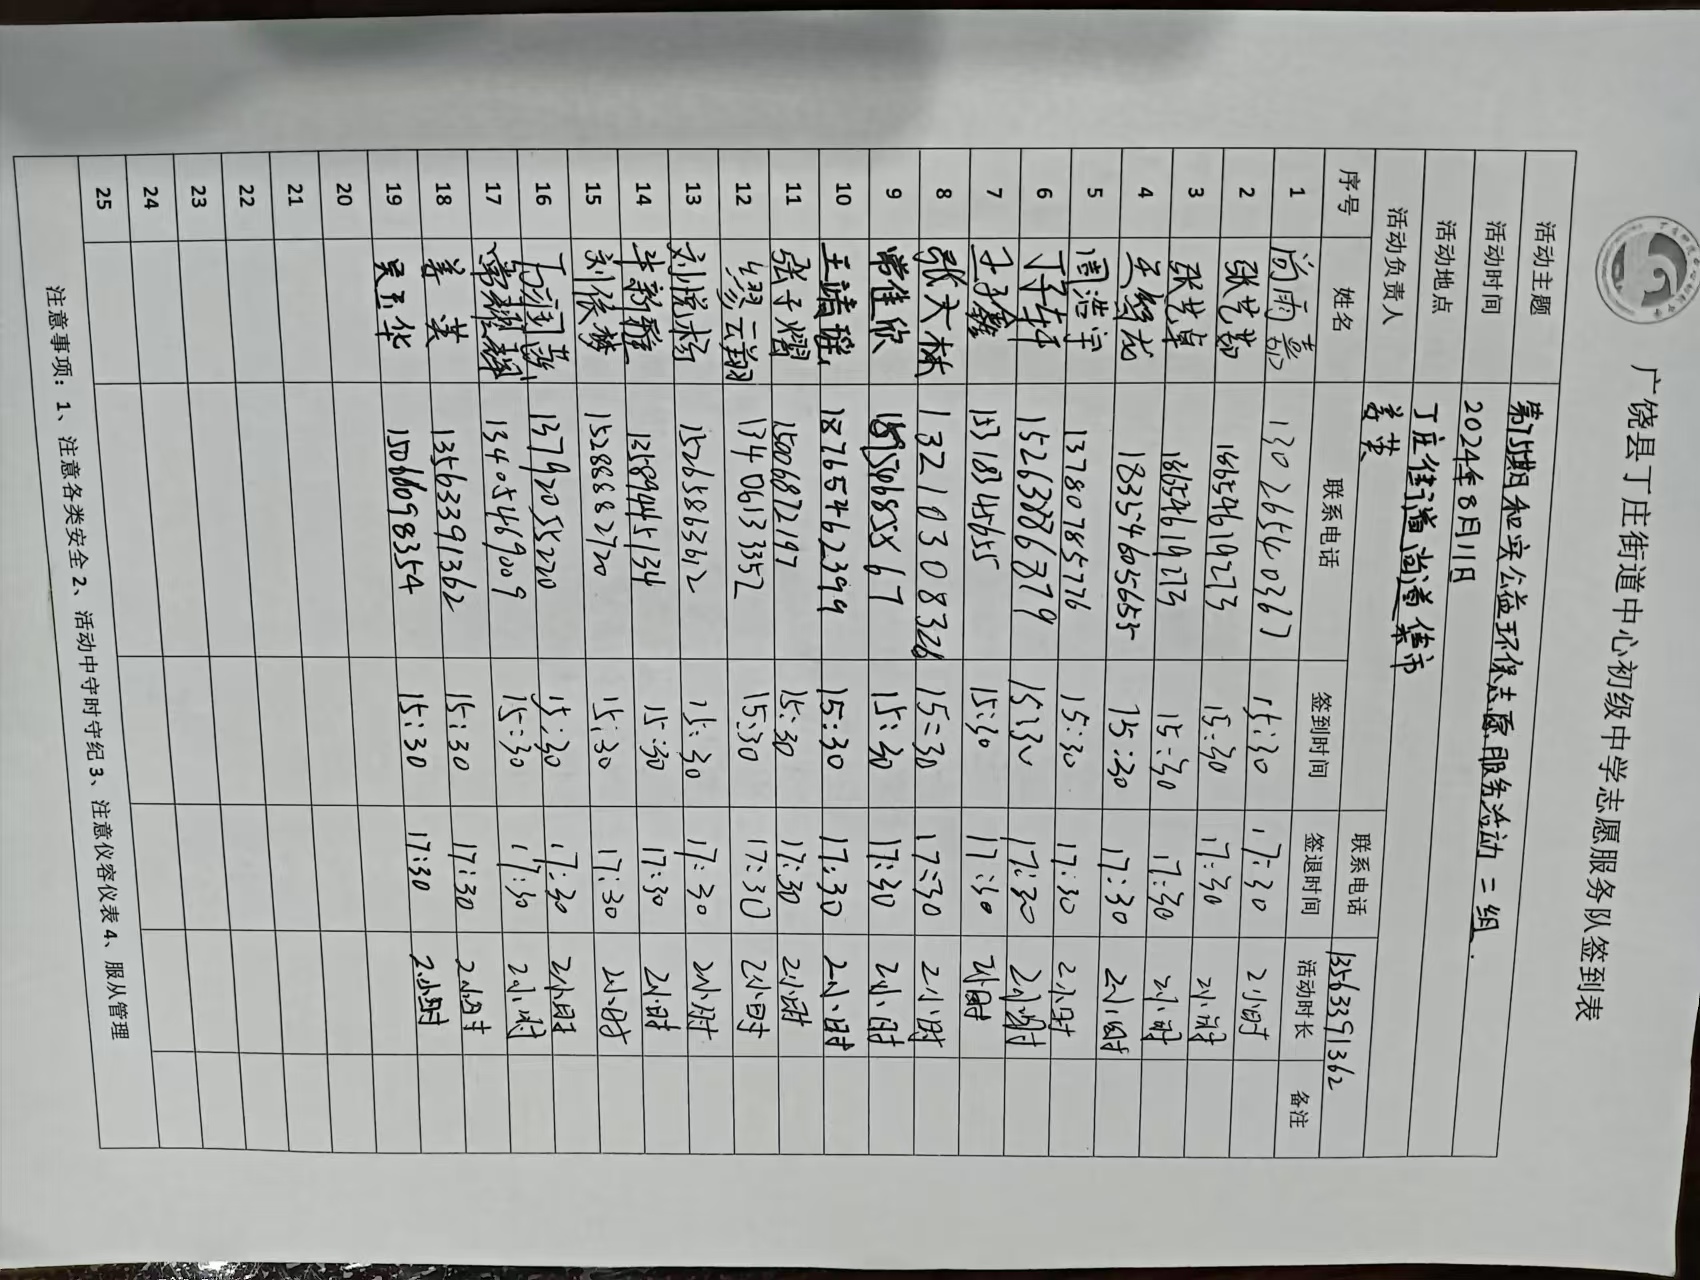 广饶县丁庄街道中心初级中学志愿服务队签到表
活动主题 第75期和实公益环保志愿服务活动二组.
活动时间 2024年8月11日
活动地点 丁庄街道尚道集市
活动负责人 姜英 联系电话 13563391362
序号 姓名 联系电话 签到时间 签退时间 活动时长 备注
1 尚雨 13026540367 15:30 17:30 2小时
2 张艺 18654619273 15:30 17:30 2小时
3 张艺卓 18654619273 15:30 17:30 2小时
4 王智龙 18354605655 15:30 17:30 2小时
5 周浩宇 13780785776 15:30 17:30 2小时
6 丁子轩 15263886379 15:30 17:30 2小时
7 王鑫 15318345655 15:30 17:30 2小时
8 张天林 13210308326 15:30 17:30 2小时
9 常佳欣 15:30 17:30 2小时
10 王靖瑶 18765462399 15:30 17:30 2小时
11 张子熠 15006872197 15:30 17:30 2小时
12 云翔 13406133352 15:30 17:30 2小时
13 刘悦杨 15265863612 15:30 17:30 2小时
14 新雅 13589445134 15:30 17:30 2小时
15 刘依梦 15288882720 15:30 17:30 2小时
16 13792055220 15:30 17:30 2小时
17 13405469009 15:30 17:30 2小时
18 姜英 13563391362 15:30 17:30 2小时
19 吴玉华 15066098354 15:30 17:30 2小时
20
21
22
23
24
25
注意事项：1、注意各类安全 2、活动中守时守纪 3、注意仪容仪表 4、服从管理